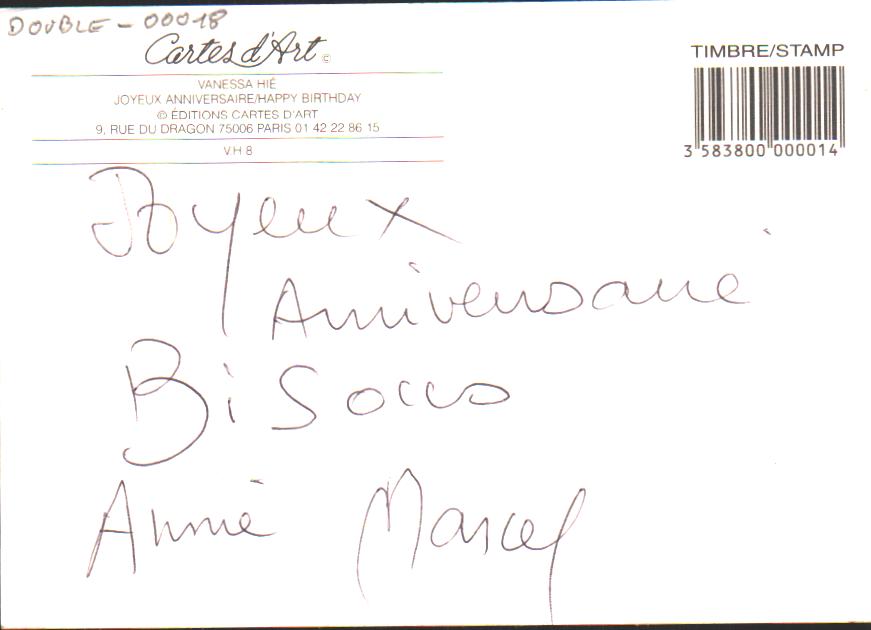 DOUBLE - 00018
Cartes d'Art ©
VANESSA HIÉ
JOYEUX ANNIVERSAIRE/HAPPY BIRTHDAY
© ÉDITIONS CARTES D'ART
9, RUE DU DRAGON 75006 PARIS 01 42 22 86 15
VH 8
TIMBRE/STAMP
3 583800 000014
Joyeux
Anniversaire
Bisous
Annie Marcel